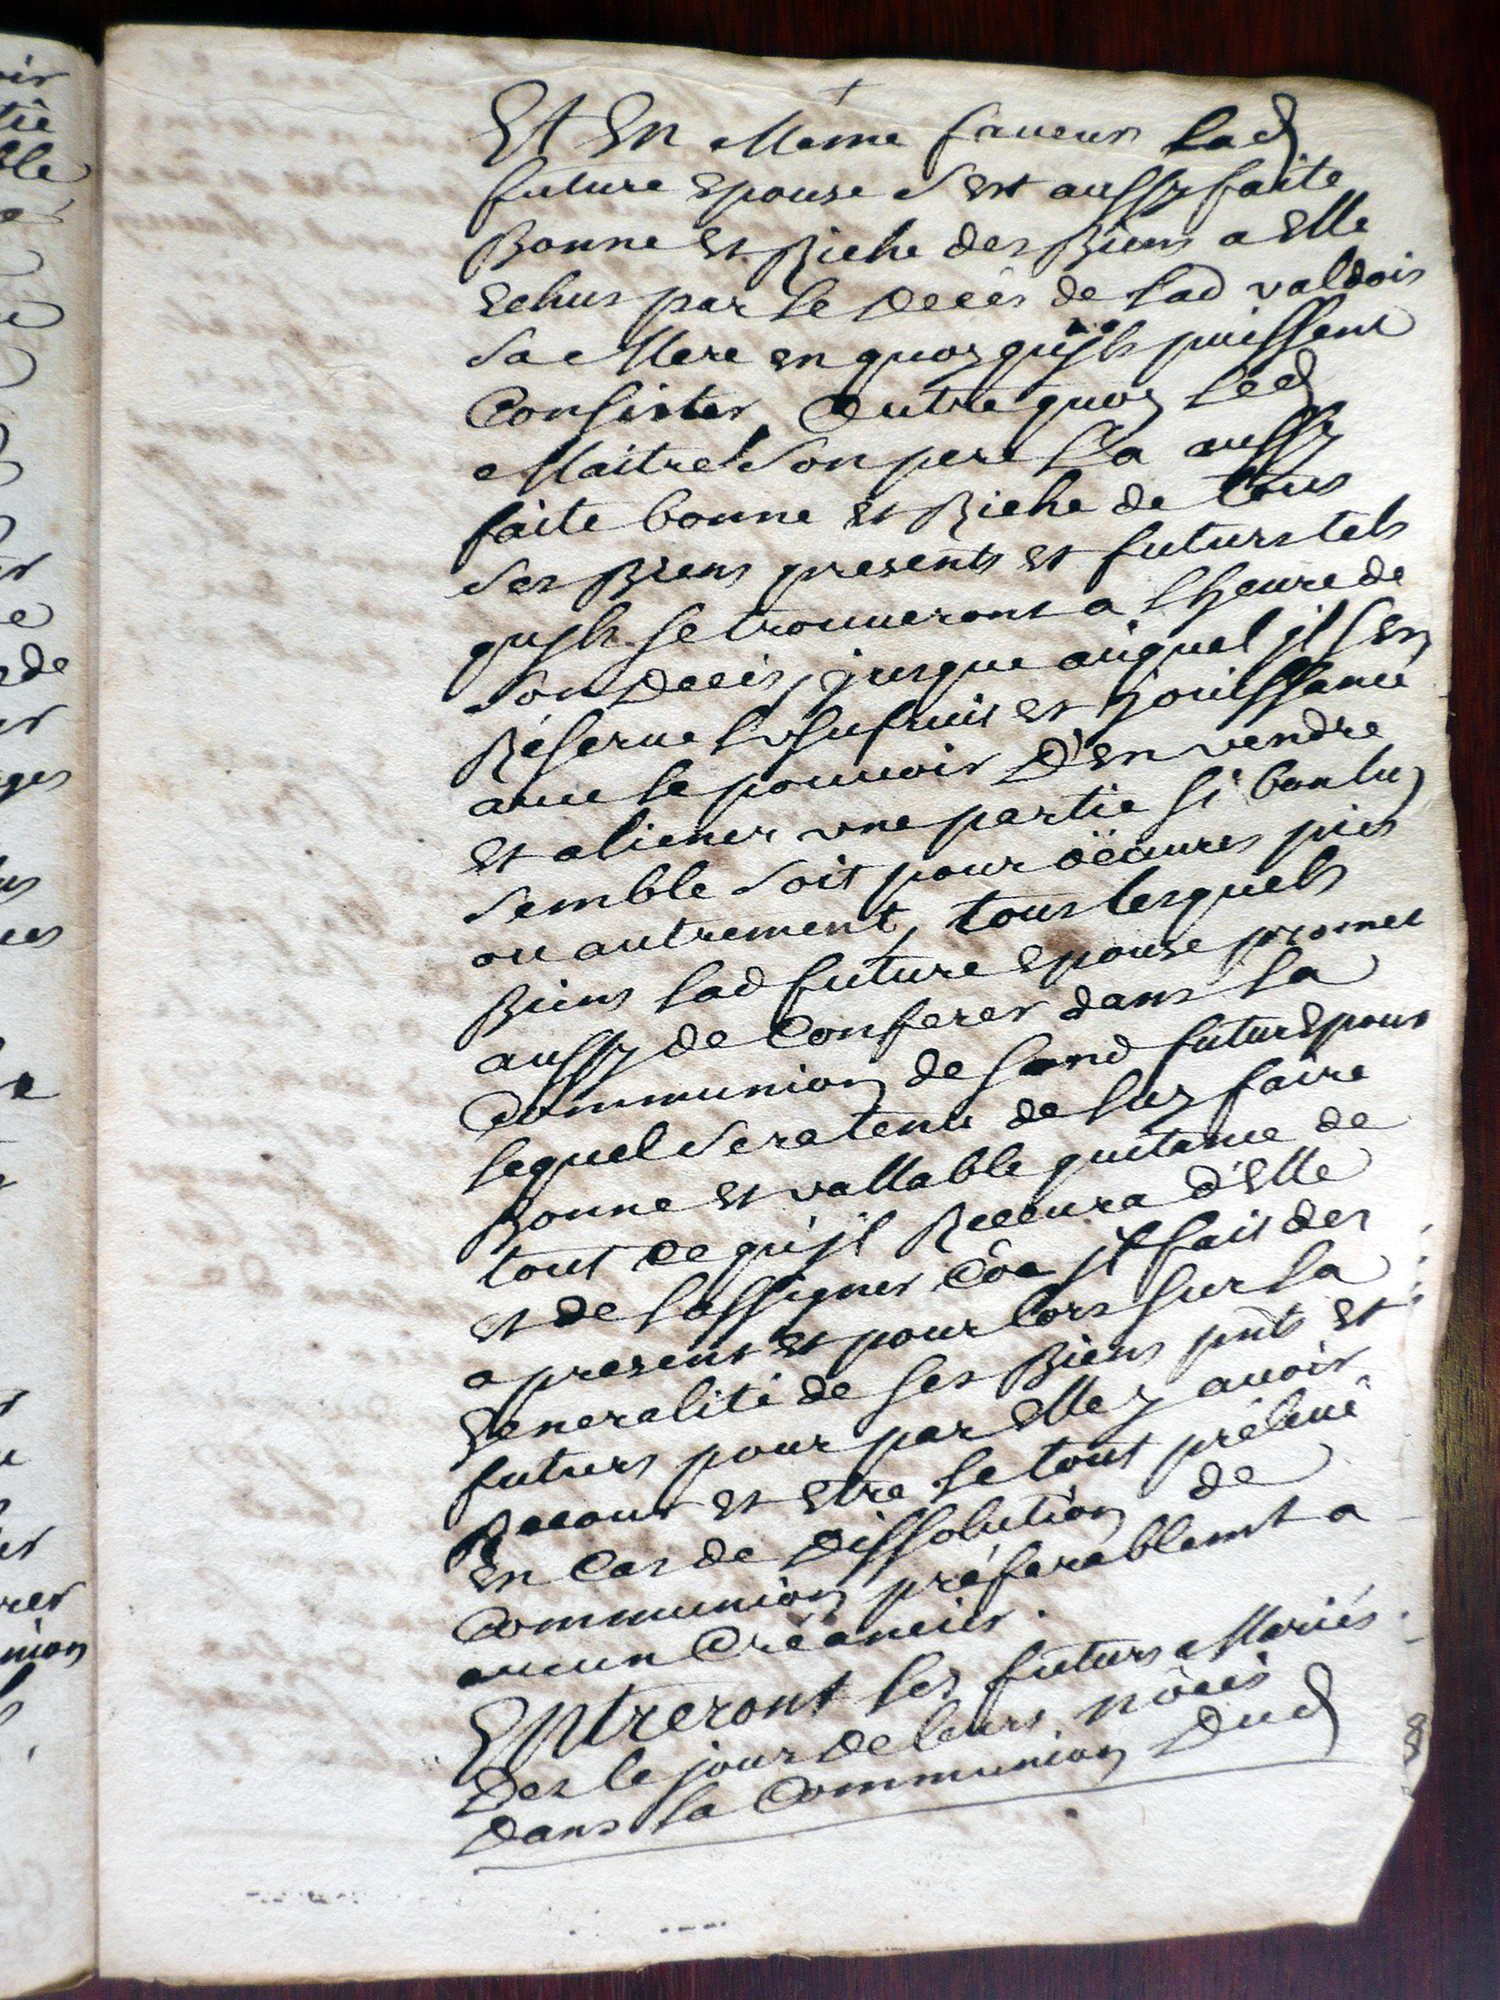 Et En Même faueur lad
future Epouse s'Est aussy faite
Bonne Et Riche des Biens a Elle
Echus par le Decès de lad valdois
sa Mere en quoy qu'jls puissent
Consister, Outre quoy led
Maitre son pere l'a aussy
faite bonne Et Riche de tous
ses Biens presents Et futurs tels
qujls se trouueront a l'heure de
son Decès, jusque auquel jl s'En
Réserue l'vsufruit Et jouissance
auec le pouuoir D'En vendre
Et aliener vne partie si bon luy
semble soit pour oëuures pies
ou autrement, tous lesquels
Biens lad future Epouse promet
aussy de Conferer dans la
Communion de sond futur Epoux
lequel sera tenu de luy faire
Bonne Et vallable quitance de
tout Ce qu'jl Receura d'Elle
Et de l'assigner Côe jl fait des
a present Et pour lors sur la
Generalité de ses Biens pnts Et
futurs pour par Elle y auoir
Recour Et Etre le tout préleué
En Cas de Dissolution de
Communion préferablemt a
aucun Créancier.
Entreront les futurs Mariés
Des le jour De leurs nôces
Dans la Communion Dud